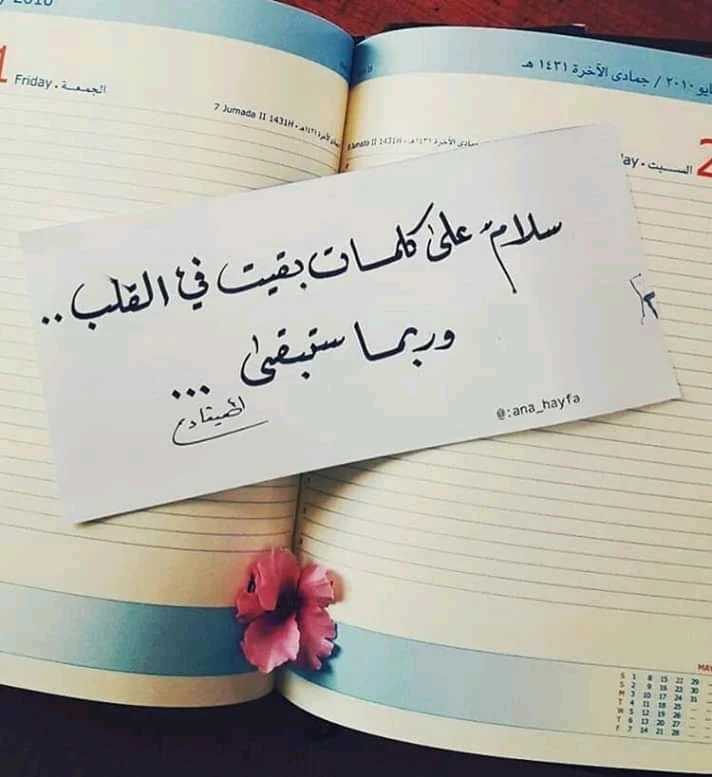 2010
Friday . الجمعة
7 Jumada II 1431H
جمادى الآخرة ١٤٣١ هـ / ٢٠١٠
السبت
2
سلامٌ على كلمات بقيت في القلب ..
وربما ستبقى ...
@:ana_hayfa
MAY
S 1 8 15 22 29
S 2 9 16 23 30
M 3 10 17 24 31
T 4 11 18 25
W 5 12 19 26
T 6 13 20 27
F 7 14 21 28